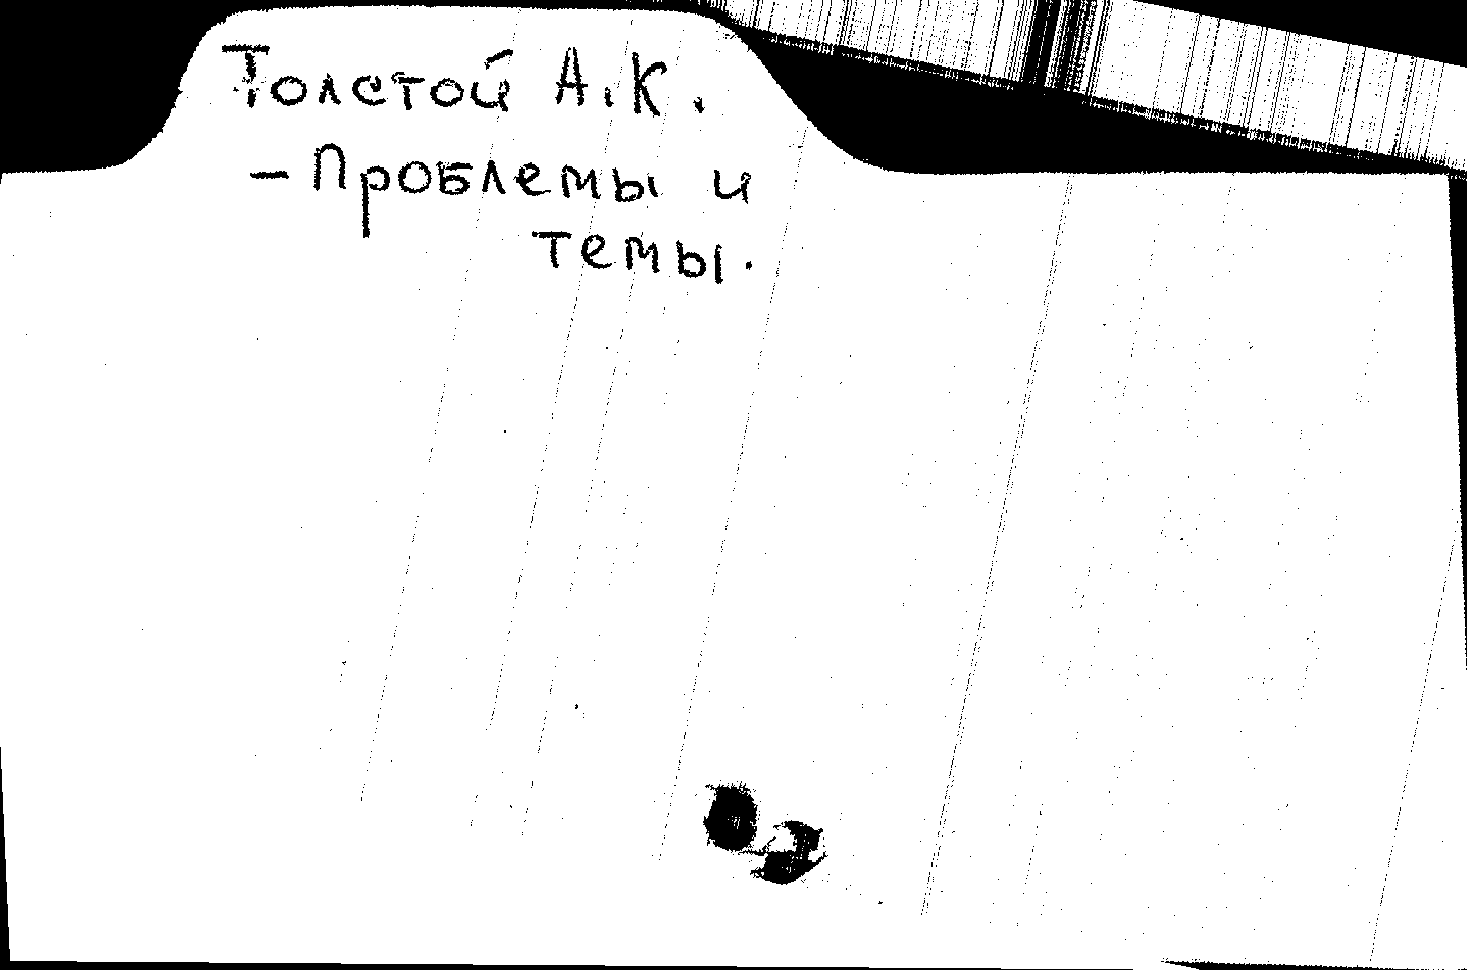 Толстой А.К.
- Проблемы и
темы.